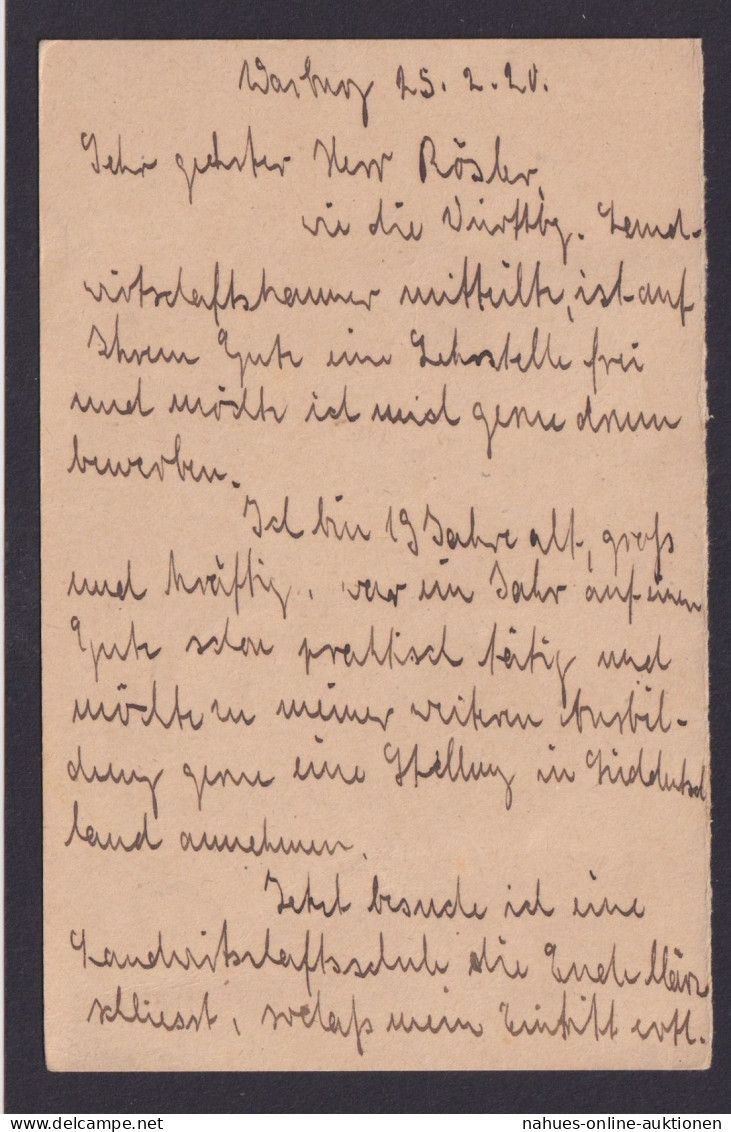 Warburg 25. 2. 20.
Sehr geehrter Herr Rösler,
wie die Württbg. Land-
wirtschaftskammer mitteilte, ist auf
Ihrem Gute eine Lehrstelle frei
und möchte ich mich gerne drum
bewerben.
Ich bin 19 Jahre alt, groß
und kräftig, war ein Jahr auf einem
Gute schon praktisch tätig und
möchte zu meiner weiteren Ausbil-
dung gerne eine Stellung in Süddeutsch
land annehmen.
Jetzt besuche ich eine
Landwirtschaftsschule die Ende März
schliesst, sodaß mein Eintritt evtl.
nahues-online-auktionen